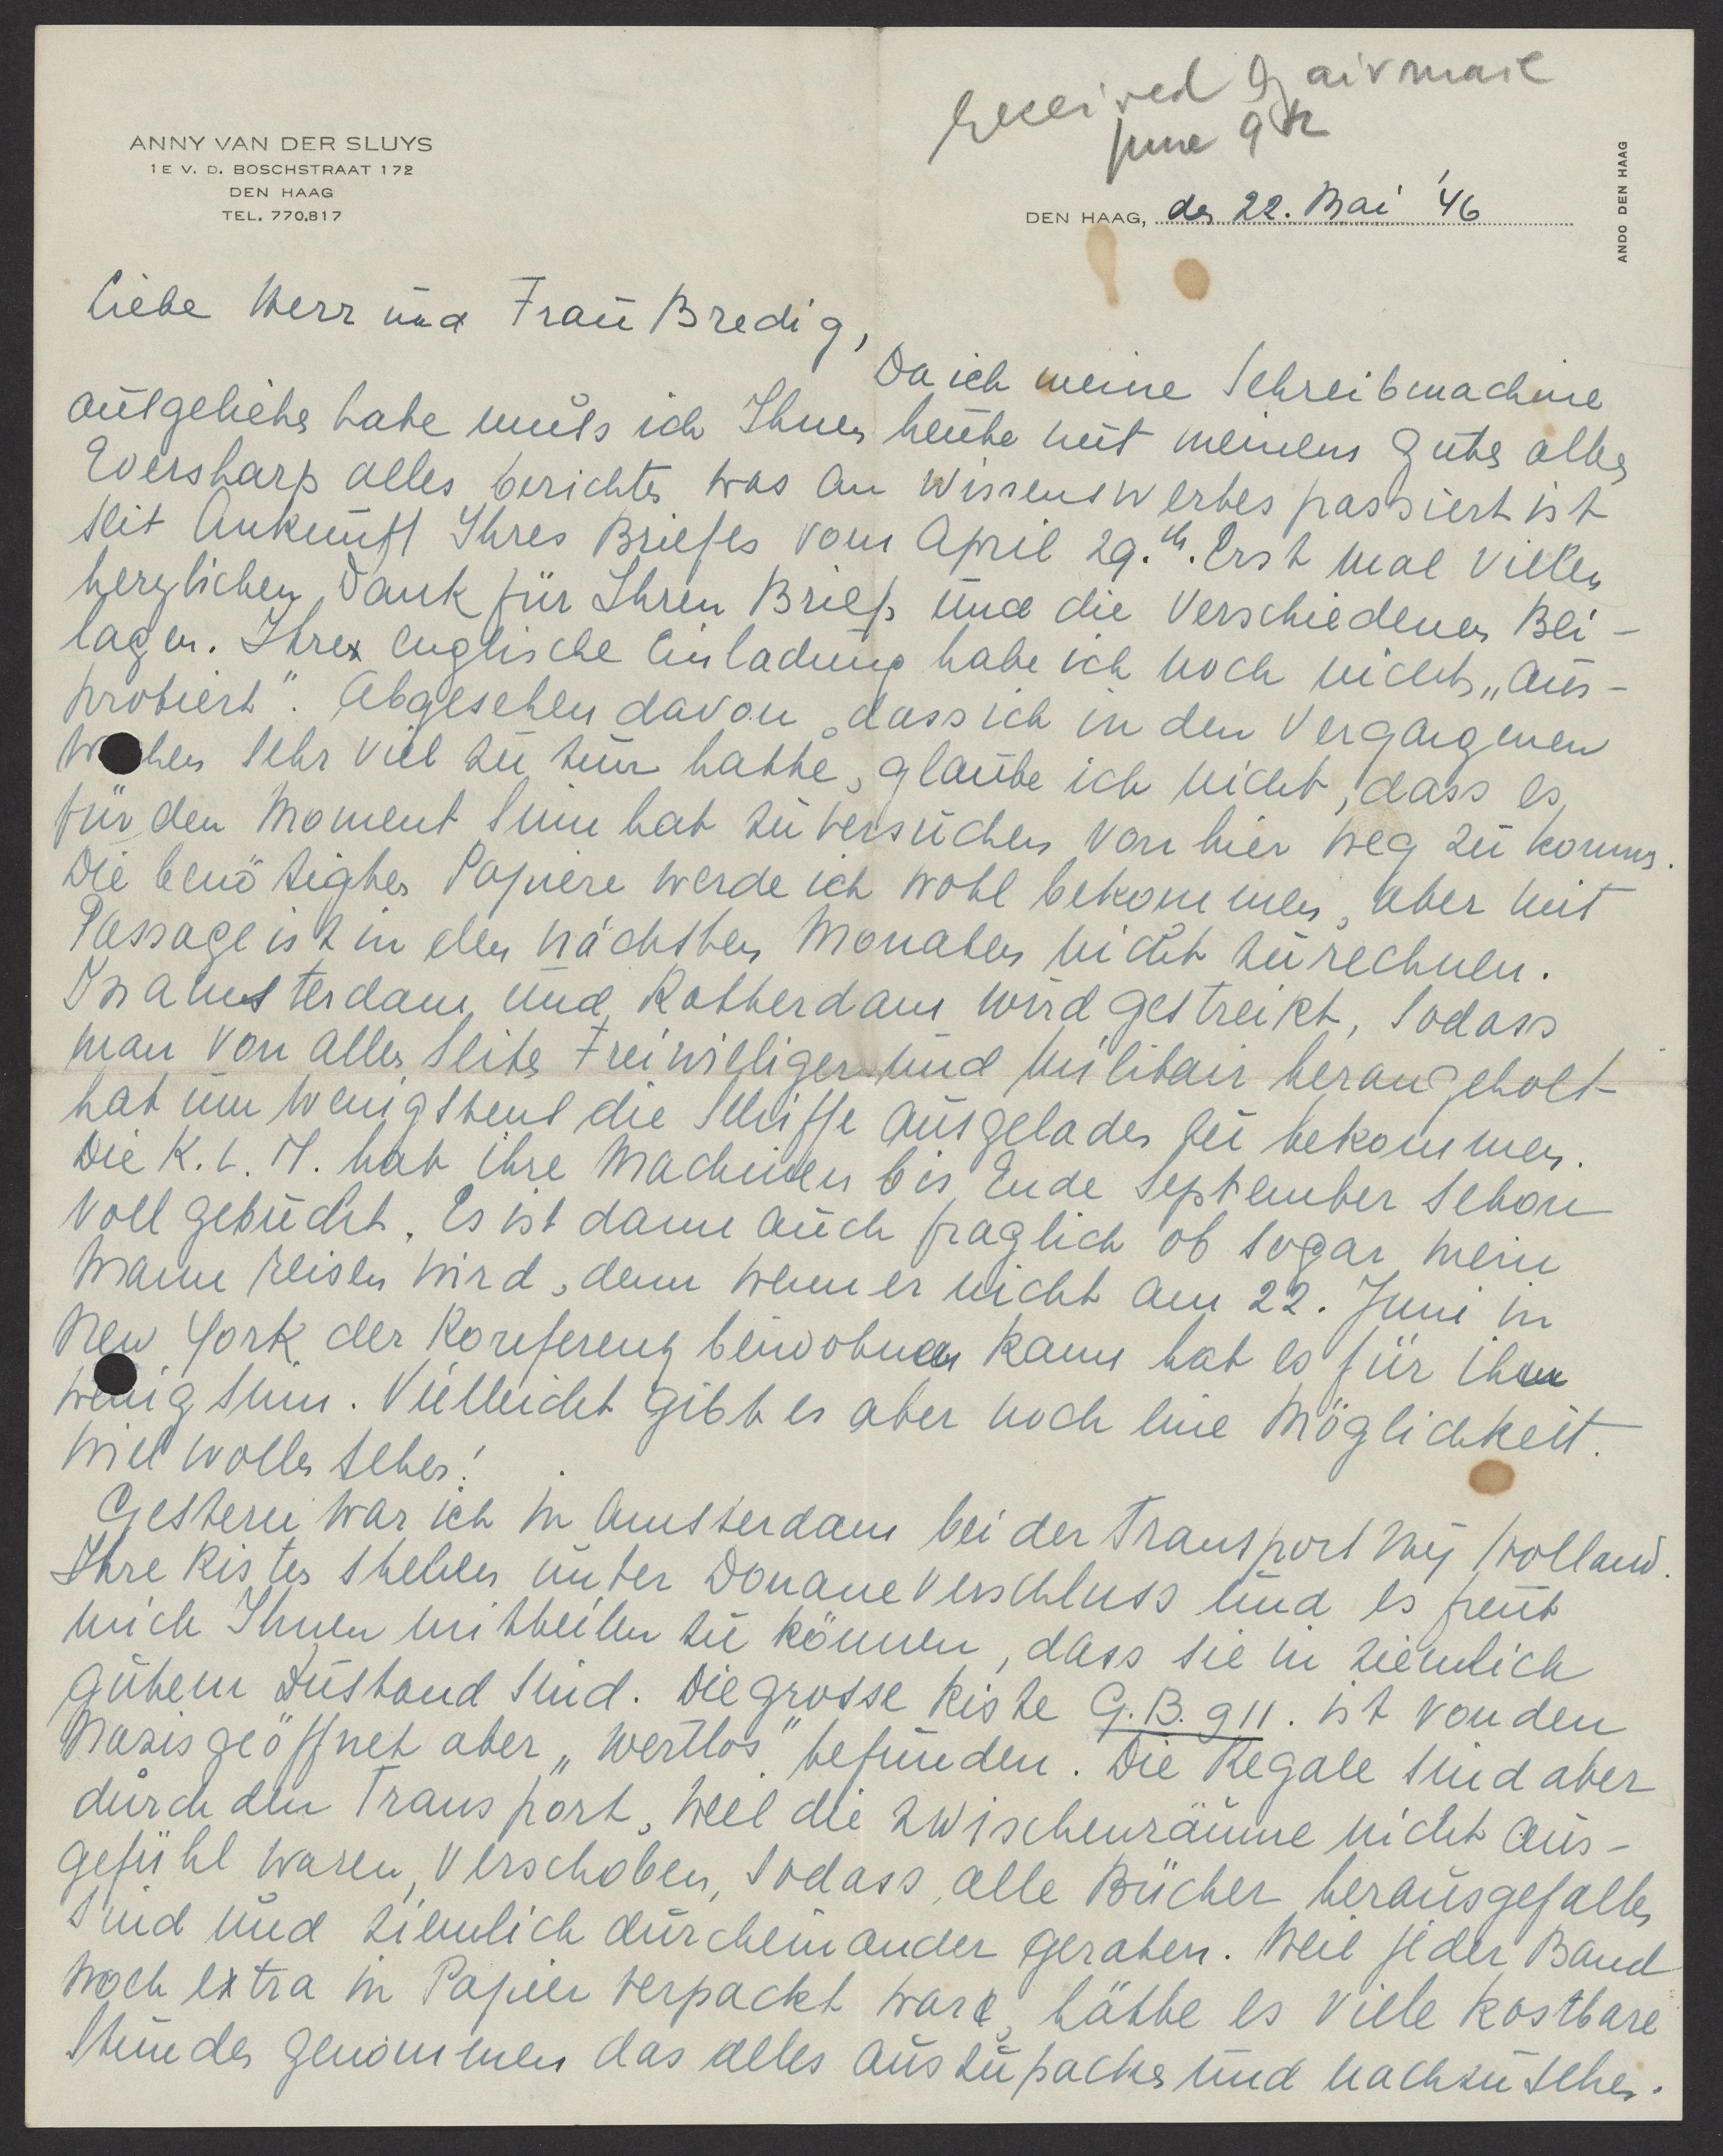 received by airmail
june 9th
ANNY VAN DER SLUYS
1E V. D. BOSCHSTRAAT 172
DEN HAAG
TEL. 770.817
DEN HAAG, den 22. Mai '46
ANDO DEN HAAG
Liebe Herr und Frau Bredig,
Da ich meine Schreibmachine
ausgeliehen habe muss ich Ihnen heute mit meinem guten alten
Eversharp alles berichten was an Wissenswertes passiert ist
seit Ankunft Ihres Briefes vom April 29.th. Erst mal vielen
herzlichen Dank für Ihren Brief und die verschiedenen Bei-
lagen. Ihre englische Einladung habe ich noch nicht „aus-
probiert". Abgesehen davon, dass ich in den vergangenen
Wochen sehr viel zu tun hatte, glaube ich nicht, dass es
für den Moment Sinn hat zu versuchen von hier weg zu kommen.
Die benötigten Papiere werde ich wohl bekommen, aber mit
Passage ist in den nächsten Monaten nicht zu rechnen.
In Amsterdam und Rotterdam wird gestreikt, sodass
man von allen Seiten Freiwilliger und Militair herangeholt
hat um wenigstens die Schiffe ausgeladen zu bekommen.
Die K.L.M. hat ihre Machinen bis Ende September schon
voll gebucht. Es ist dann auch fraglich ob sogar mein
Mann reisen wird, denn wenn er nicht am 22. Juni in
New York der Konferenz beiwohnen kann hat es für ihn
wenig Sinn. Vielleicht gibt es aber noch eine Möglichkeit.
Wir wollen sehen!
Gestern war ich in Amsterdam bei der Transport Mij Holland.
Ihre Kisten stehen unter Douane Verschluss und es freut
mich Ihnen mitteilen zu können, dass sie in ziemlich
gutem Zustand sind. Die grosse Kiste G.B. 911. ist von den
Nazis geöffnet aber „wertlos" befunden. Die Regale sind aber
durch den Transport, weil die Zwischenräume nicht aus-
gefühl waren, verschoben, sodass alle Bücher herausgefallen
sind und ziemlich durcheinander geraten. Weil jeder Band
noch extra in Papier verpackt war, hätte es viele kostbare
Stunden genommen das alles auszupacken und nachzusehen.